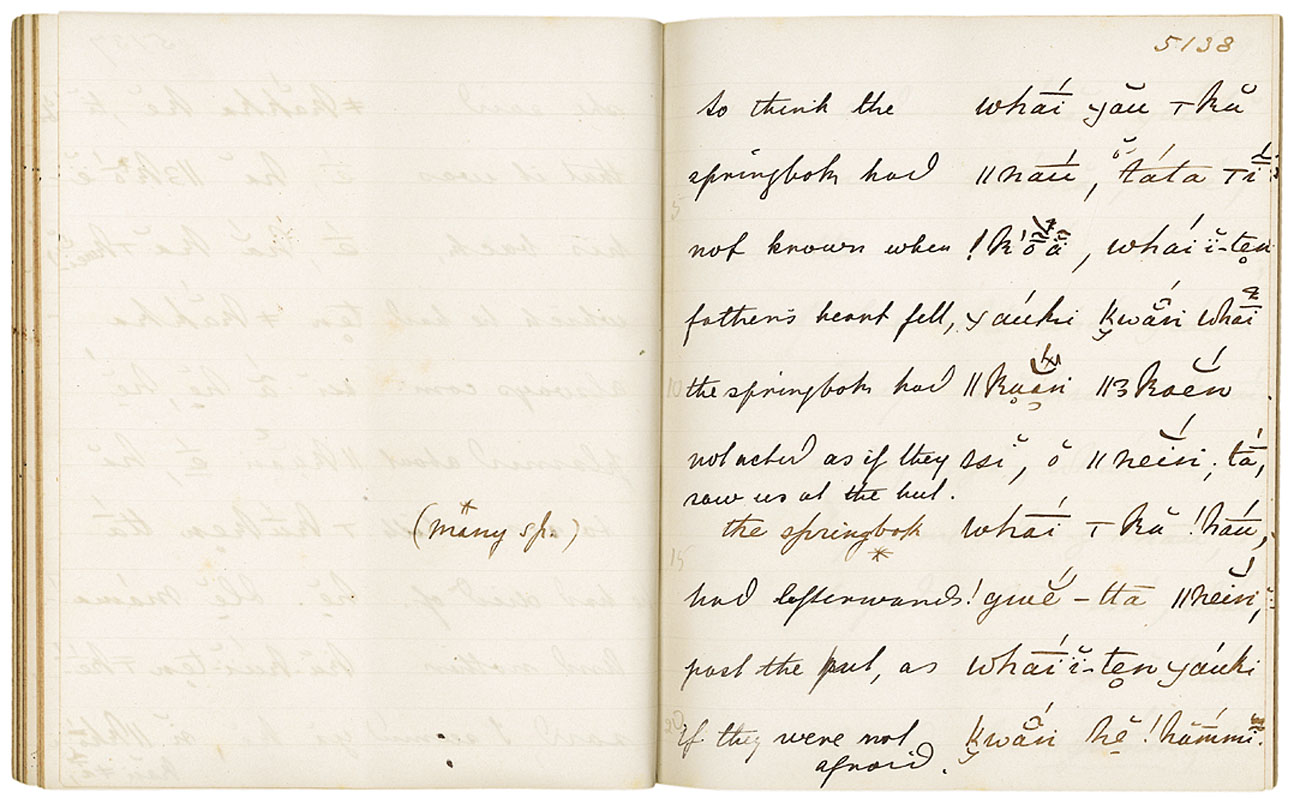 (many sp.)
5138
to think the whái yău ⊤kŭ
springbok had ǁnáu, táta
not known when whái ĭ-tẹn
father's heart fell, yáuki k̬wắn whái
the springbok had
not acted as if they ssĭ, ŏ ǁnéĭn; tá,
saw us at the hut.
the springbok whái ⊤kŭ !háu,
* 
had afterwards !gwĕ́-tta ǁnéĭn,
past the hut, as whái ĭ-tẹn yáuki
if they were not k̬wắn
afraid.